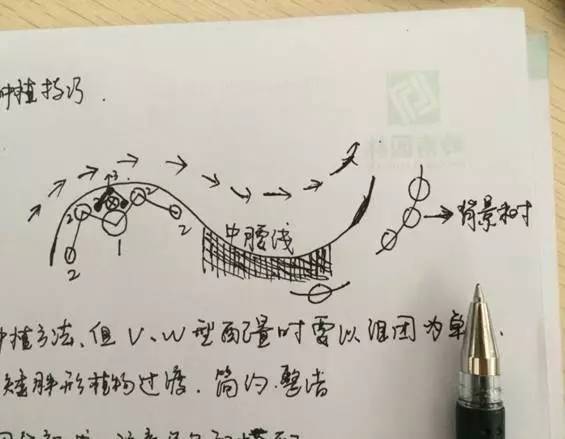 种植技巧.
3
2 2
2 1 2
中腰线
背景树
种植方法、但V、W型配置时需以组团为单
矮胖形植物过渡.简约.整洁